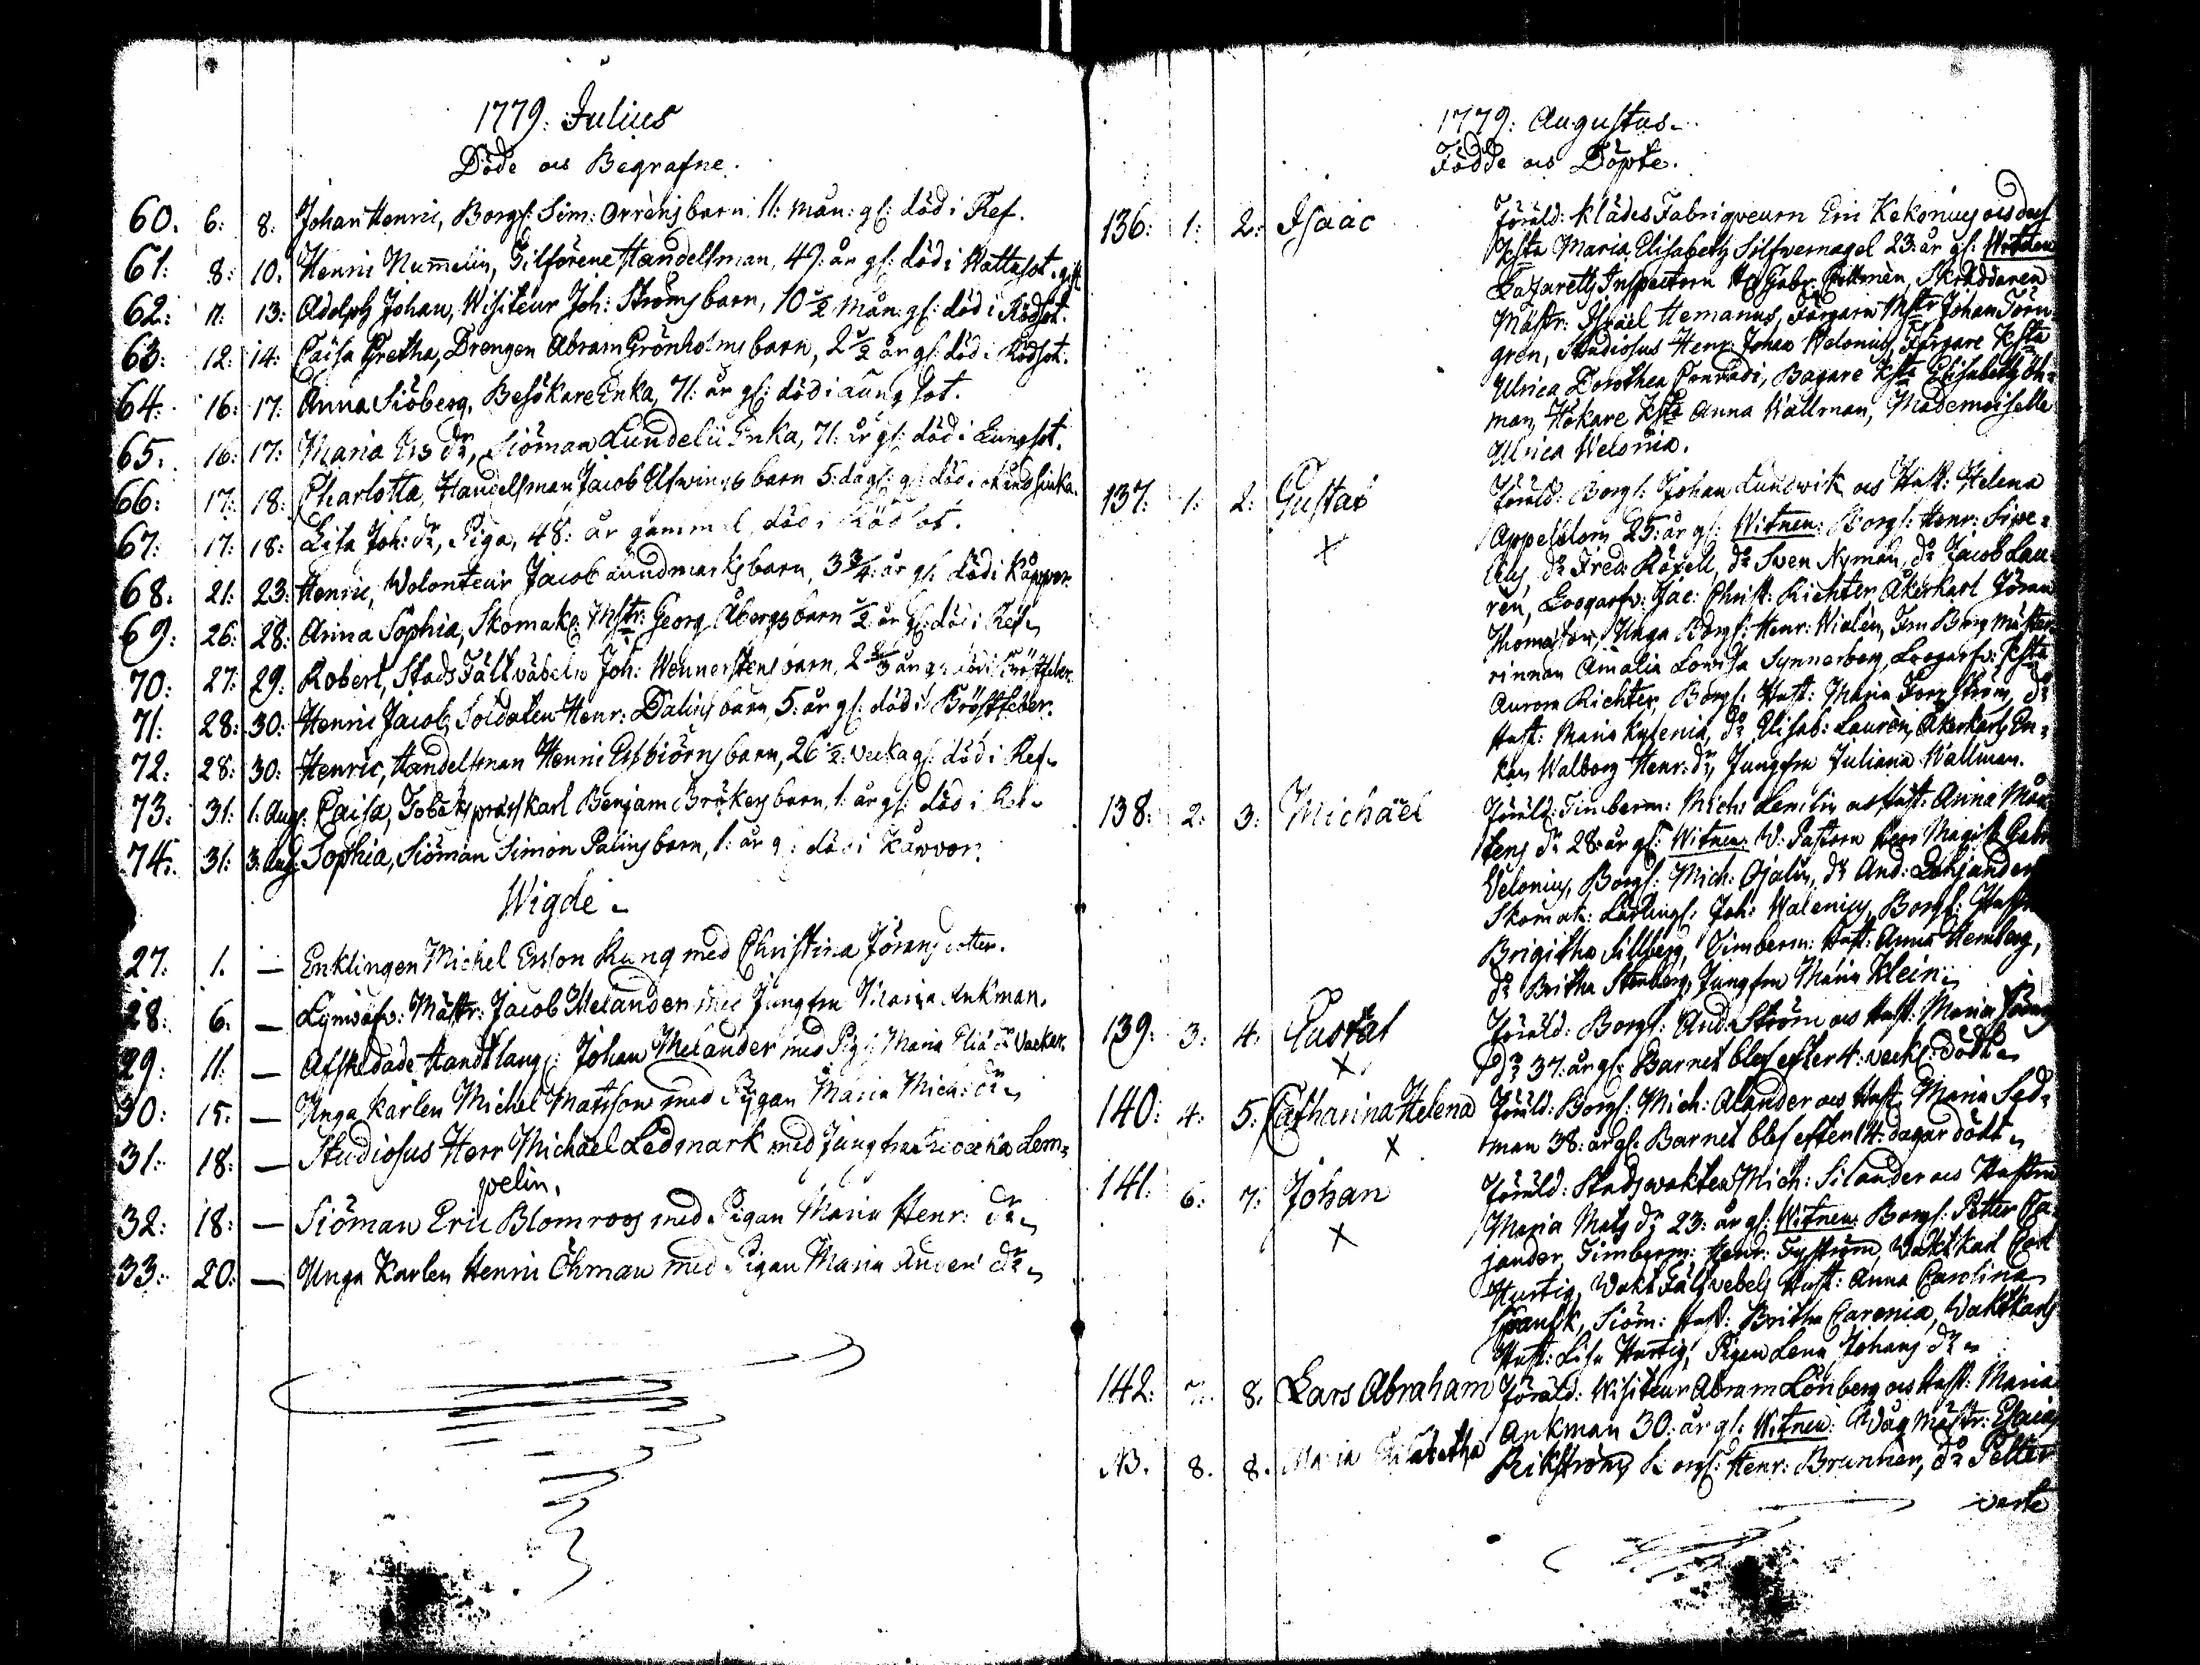 1779: Julius
Döde och Begrafne.
60. 6: 8: Johan Henric, Borgs: Sim: Orrèns barn 11: Mån: gl: död i Ref.
61: 8: 10: Henric Numelin, Tilförene Handelsman, 49: år gl: död i Wattusot. gift
62: 11: 13: Adolph Johan, Wisiteur Joh: Ströms barn, 10 1/2 Mån: gl: död i Rödsot.
63: 12: 14: Caisa Gretha, Drengen Abram Grönholms barn, 2 1/2 år gl: död i Rödsot.
64: 16: 17: Anna Siöberg, Besökare Enka, 71: år gl: död i Lungsot.
65. 16: 17: Maria Ers dr, Siöman Lundelii Enka, 71: år gl: död i Lungsot.
66: 17: 18: Charlotta, Handelsman Jacob Elfwings barn 5: dagr: gl: död i
67: 17: 18: Lisa Joh: dr, Piga, 48: år gammal, död i Rödsot.
68: 21: 23: Henric, Volonteur Jacob Lundmarks barn, 3 3/4: år gl: död i Kåppor.
69: 26: 28: Anna Sophia, Skomak: Mstr: Georg Åbergs barn 1/2 år gl: död i Ref
70: 27: 29: Robert, Stads Fältväbeln Joh: Wennerstens barn, 2 2/3 år gl: död i Bröstfeber.
71: 28: 30: Henric Jacob, Soldaten Henr: Dalins barn, 5: år gl: död i Bröstfeber.
72: 28: 30: Henric, Handelsman Henric Esbiörns barn, 26 1/2: Vecka gl: död i Ref
73. 31: 1. Aug: Caisa, Karl Benjam: barn, 1: år gl: död i Ref
74. 31: 3. Aug: Sophia, Siöman Simon Palins barn, 1: år gl: död i Kåppor.
Wigde
27: 1. — Enklingen Michel Ersson Kung med Christina Jörans dotter.
28: 6. — Mästr: Jacob Melander med Jungfru Maria Ankman.
29: 11: — Afskedade Handtlang: Johan Melander med Pig: Maria
30: 15. — Unga Karlen Michel Matsson med Pigan Maria Mich: dr
31: 18: — Studiosus Herr Michaël Ledmark med Jungfru Lem=
qvelin.
32: 18: — Siöman Eric Blomroos med Pigan Maria Henr: dr
33: 20: — Unga Karlen Henric Öhman med Pigan Maria Anders dr
1779: Augustus
Födde och Döpte.
136: 1: 2: Isaac Föräld: Klädes Fabriqveurn Eric Kekonius och dess
Hsta Maria Elisabeth Silfvernagel 23: år gl: Witnen
Lazaretts Inspectorn Hr Gabr: Skräddaren
Mästr: Israël Hemanus, Färgarn Mstr Johan Törn=
gren, Studiosus Henr: Johan Welonius, Färgare Hsta
Ulrica Dorothea Conradi, Bagare Hsta Elisabeth Öh=
man, Hökare Hsta Anna Wallman, Mademoiselle
Ulrica Welonia.
137: 1: 2: Gustaf Föräld: Borgs: Johan Lundwik och Hust: Helena
X Appelblom 25: år gl: Witnen: Borgs: Henr: Sipe=
lius, do Fred: do Sven Nyman, do Jacob Lau=
rèn, Jac: Christ: Richter, Åkerkarl Jöran
Thomasson, Unga Borgs: Henr: Wialèn, Fru Borgmäster=
rinnan Amalia Lovisa Synnerberg, Hsta
Aurora Richter, Borgs: Hust: Maria Forsström, do
Hust: Maria Kylenia, do Elisab: Laurèn, Åkerkarls En=
kan Walborg Henr: dr, Jungfru Juliana Wallman.
138: 2: 3: Michaël Föräld: Timberm: Mich: och Hust: Anna Mår=
tens dr 28: år gl: Witnen: V: Pastorn Herr Magist: Gabr:
Welonius, Borgs: Mich: Ojalin, do And: Lohjander,
Skomak: Lärlings: Joh: Walenius, Borgs: Hustru
Brigitha Sillberg, Timberm: Hust: Anna Hemberg,
do Britha Stenberg, Jungfru Maria Klein
139: 3: 4: Gustaf Föräld: Borgs: And: Ström och Hust: Maria
X dr 37: år gl: Barnet blef efter 4: veck: dödt
140: 4: 5: Catharina Helena Föräld: Borgs: Mich: Alander och Hust: Maria Sed=
X man 38: år gl: Barnet blef efter 14: dagar dödt
141. 6: 7: Johan Föräld: Stadswakten Mich: Silander och Hustru
X Maria Mats dr 23: år gl: Witnen: Borgs: Petter Ca=
jander, Timberm: Henr: Wakt karl Carl
Hurtig, Wakt Fältvebels Hust: Anna Carolina
Siöm: Hust: Britha Carenia, Waktkarls
Hust: Lisa Hurtig, Pigan Lena Johans dr
142: 7: 8: Lars Abraham Föräld: Wisiteur Abram Lönberg och Hust: Maria
Ankman 30: år gl: Witnen: Mästr: Esaias
NB. 8. 8. Maria Elisabetha Rikström, Borgs: Henr: Brunnèn, do Petter
verte